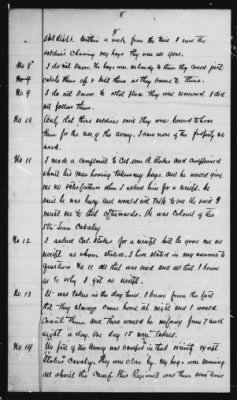 8
8
soldiers. Within a week from the time I saw the
soldiers chasing my hogs they were all gone.
No 8 I do not know, the hogs were nobody to them they could just
No 9 catch them up & kill them as they came to them.
No 9 I do not know to what place they was removed. I did
not follow them.
No 10 Only that these soldiers said they were bound to have
them for the use of the army. I saw none of the property so
used.
No 11 I made a complaint to Col Wm B. Stokes and complained
about his men having taken my hogs and he would give
me no satisfaction when I asked him for a receipt. He
said he was busy and would not talk to me He said I
must see to that afterwards. He was Colonel of the
5th Tenn Cavalry
No 12 I asked Col. Stokes for a receipt but he gave me no
receipt as above stated. I have stated in my answer to
question No 11 all that was said and all that I know
as to why I got no receipt.
No 13 It was taken in the day time. I know from the fact
that they always came home at night and I would
count them and there would be missing from 7 and
eight a day. One day 15 were taken.
No 14 No part of the Army was camped in that vicinity except
"Stokes" Cavalry. They were close by. My hogs were running
all about the Camp. this Regiment was there some time